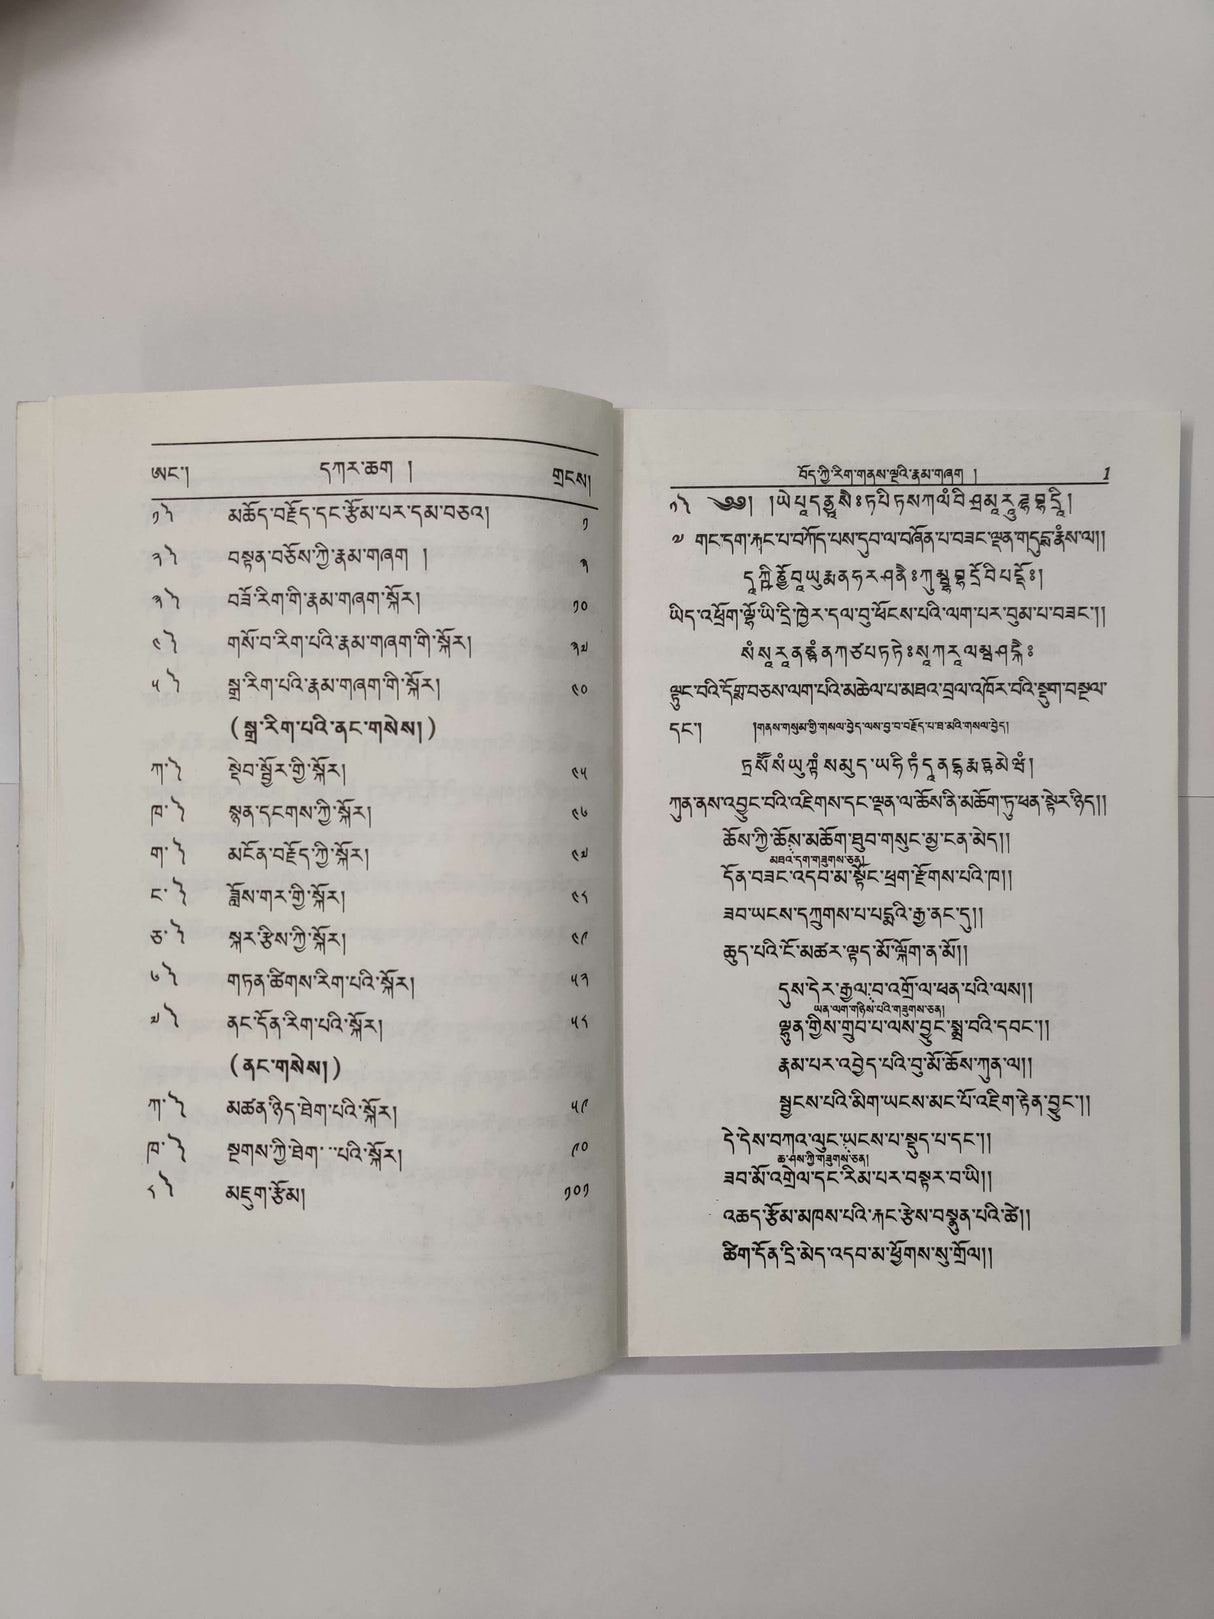 ཨང་། དཀར་ཆག ། གྲངས།
༡༽ མཆོད་བརྗོད་དང་རྩོམ་པར་དམ་བཅའ། ༡
༢༽ བསྟན་བཅོས་ཀྱི་རྣམ་གཞག ། ༢
༣༽ བཟོ་རིག་གི་རྣམ་གཞག་སྐོར། ༡༠
༤༽ གསོ་བ་རིག་པའི་རྣམ་གཞག་གི་སྐོར། ༢༧
༥༽ སྒྲ་རིག་པའི་རྣམ་གཞག་གི་སྐོར། ༤༠
(སྒྲ་རིག་པའི་ནང་གསེས།)
ཀ་༽ སྡེབ་སྦྱོར་གྱི་སྐོར། ༤༥
ཁ་༽ སྙན་དངགས་ཀྱི་སྐོར། ༤༦
ག་༽ མངོན་བརྗོད་ཀྱི་སྐོར། ༤༧
ང་༽ ཟློས་གར་གྱི་སྐོར། ༤༨
ཅ་༽ སྐར་རྩིས་ཀྱི་སྐོར། ༤༩
༦༽ གཏན་ཚིགས་རིག་པའི་སྐོར། ༥༢
༧༽ ནང་དོན་རིག་པའི་སྐོར། ༥༨
(ནང་གསེས།)
ཀ་༽ མཚན་ཉིད་ཐེག་པའི་སྐོར། ༥༩
ཁ་༽ སྔགས་ཀྱི་ཐེག་པའི་སྐོར། ༩༠
༨༽ མཇུག་རྩོམ། ༡༠༡
བོད་ཀྱི་རིག་གནས་ལྔའི་རྣམ་གཞག ། 1
༡༽ ༄༅། །
༧ གང་དག་རྐང་པ་བཀོད་པས་དུབ་ལ་བཞོན་པ་བཟང་ལྡན་གདུབྷ་རྣམས་ལ།།
ཡིད་འཕྲོག་ལྷོ་ཡི་དྲི་ཁྱེར་དལ་བུ་ཕོངས་པའི་ལག་པར་བུམ་པ་བཟང་།།
ལྟུང་བའི་དོགྨ་བཅས་ལག་པའི་མཆེལ་པ་མཐའ་བྲལ་འཁོར་བའི་སྡུག་བསྔལ་
དང་། །གནས་གསུམ་གྱི་གསལ་བྱེད་ལས་བྱ་བ་བརྗོད་པ་ཐ་མའི་གསལ་བྱེད།
ཀུན་ནས་འབྱུང་བའི་འཇིགས་དང་ལྡན་ལ་ཆོས་ནི་མཆོག་ཏུ་ཕན་སྟེར་ཉིད།།
ཆོས་ཀྱི་ཆོས་མཆོག་ཐུབ་གསུང་མྱ་ངན་མེད།།
མཐའ་དག་གཟུགས་ཅན།
དོན་བཟང་འདབ་མ་སྟོང་ཕྲག་རྫོགས་པའི་ཁ།།
ཟབ་ཡངས་དཀྲུགས་པ་པདྨའི་རྒྱ་ནང་དུ།།
ཆུད་པའི་ངོ་མཚར་ལྟད་མོ་ལྐོག་ན་མོ།།
དུས་དེར་རྒྱལ་བ་འགྲོ་ལ་ཕན་པའི་ལས།།
ཡན་ལག་གཉིས་པའི་གཟུགས་ཅན།
ལྷུན་གྱིས་གྲུབ་པ་ལས་བྱུང་སྨྲ་བའི་དབང་།།
རྣམ་པར་འབྱེད་པའི་བུ་མོ་ཆོས་ཀུན་ལ།།
སྦྱངས་པའི་མིག་ཡངས་མང་པོ་འཇིག་རྟེན་བྱུང་།།
དེ་དེས་བཀའ་ལུང་ཡངས་པ་སྡུད་པ་དང་།།
ཆ་ཤས་ཀྱི་གཟུགས་ཅན།
ཟབ་མོ་འགྲེལ་དང་རིམ་པར་བསྟར་བ་ཡི།།
འཆད་རྩོམ་མཁས་པའི་རྐང་རྩེས་བསྣུན་པའི་ཚེ།།
ཚིག་དོན་དྲི་མེད་འདབ་མ་ཕྱོགས་སུ་གྲོལ།།